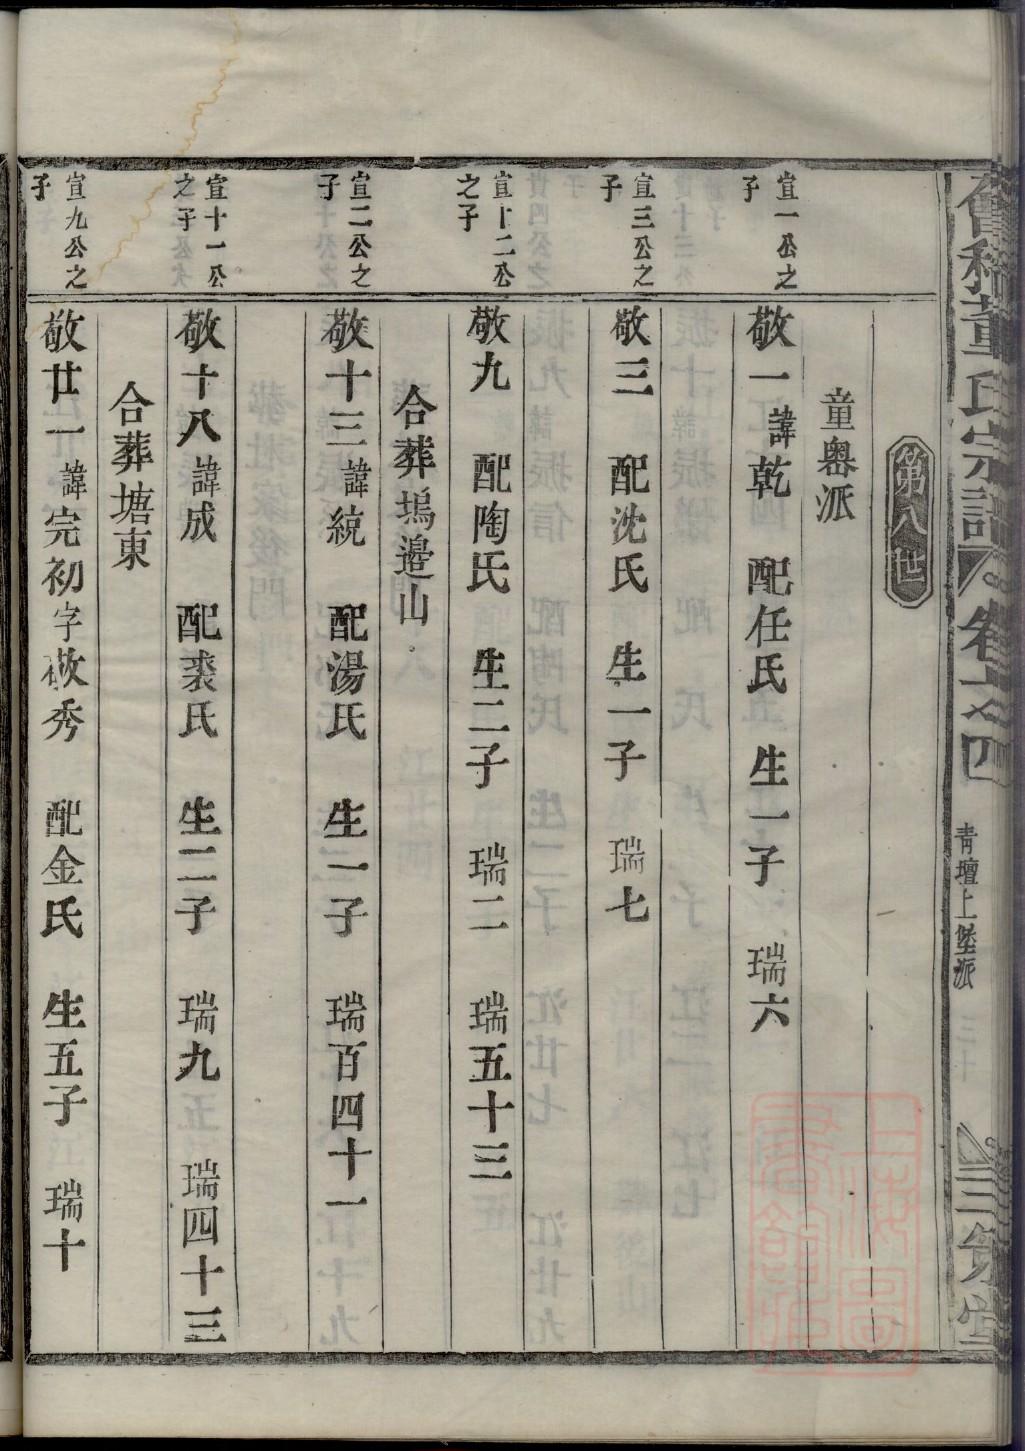 會稽董氏宗譜 卷之四 青壇上堡派 三十 三策堂
第八世
童嶴派
宣一公之
子
敬一 諱乾 配任氏 生一子 瑞六
宣三公之
子
敬三 配沈氏 生一子 瑞七
宣十二公
之子
敬九 配陶氏 生二子 瑞二 瑞五十三
合葬塢邉山
宣二公之
子
敬十三 諱統 配湯氏 生一子 瑞百四十一
宣十一公
之子
敬十八 諱成 配裘氏 生二子 瑞九 瑞四十三
合葬塘東
宣九公之
子
敬廿一 諱完初 字敬秀 配金氏 生五子 瑞十